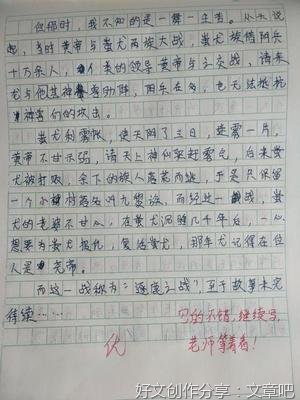 但那时，我不知的是一样一主者。从小说
起，当时黄帝与蚩尤两族大战，蚩尤族借阴兵
十万余人，个美的领导黄帝与之交战，请来
龙与他其神兽助阵，阴兵在多，也无法抵抗
神兽们的攻击。
蚩尤利雾帐，使天阴了三日，迷雾一片，
黄帝不甘示弱，请天上神仙驱赶雾气，后来蚩
尤被打败，余下的族人落荒而逃，于是只保留
一个小村落名叫九黎族。而经过一战，蚩
尤的老婆不甘心，在蚩尤沉睡几千年后，一心
想要为蚩尤报仇，复活蚩尤，那年尤记得在位
人是尧帝。
而这一战称为：逐鹿之战？，至于故事未完
待续……
写的不错，继续写，
优
老师等着看！
好文创作分享：文章吧